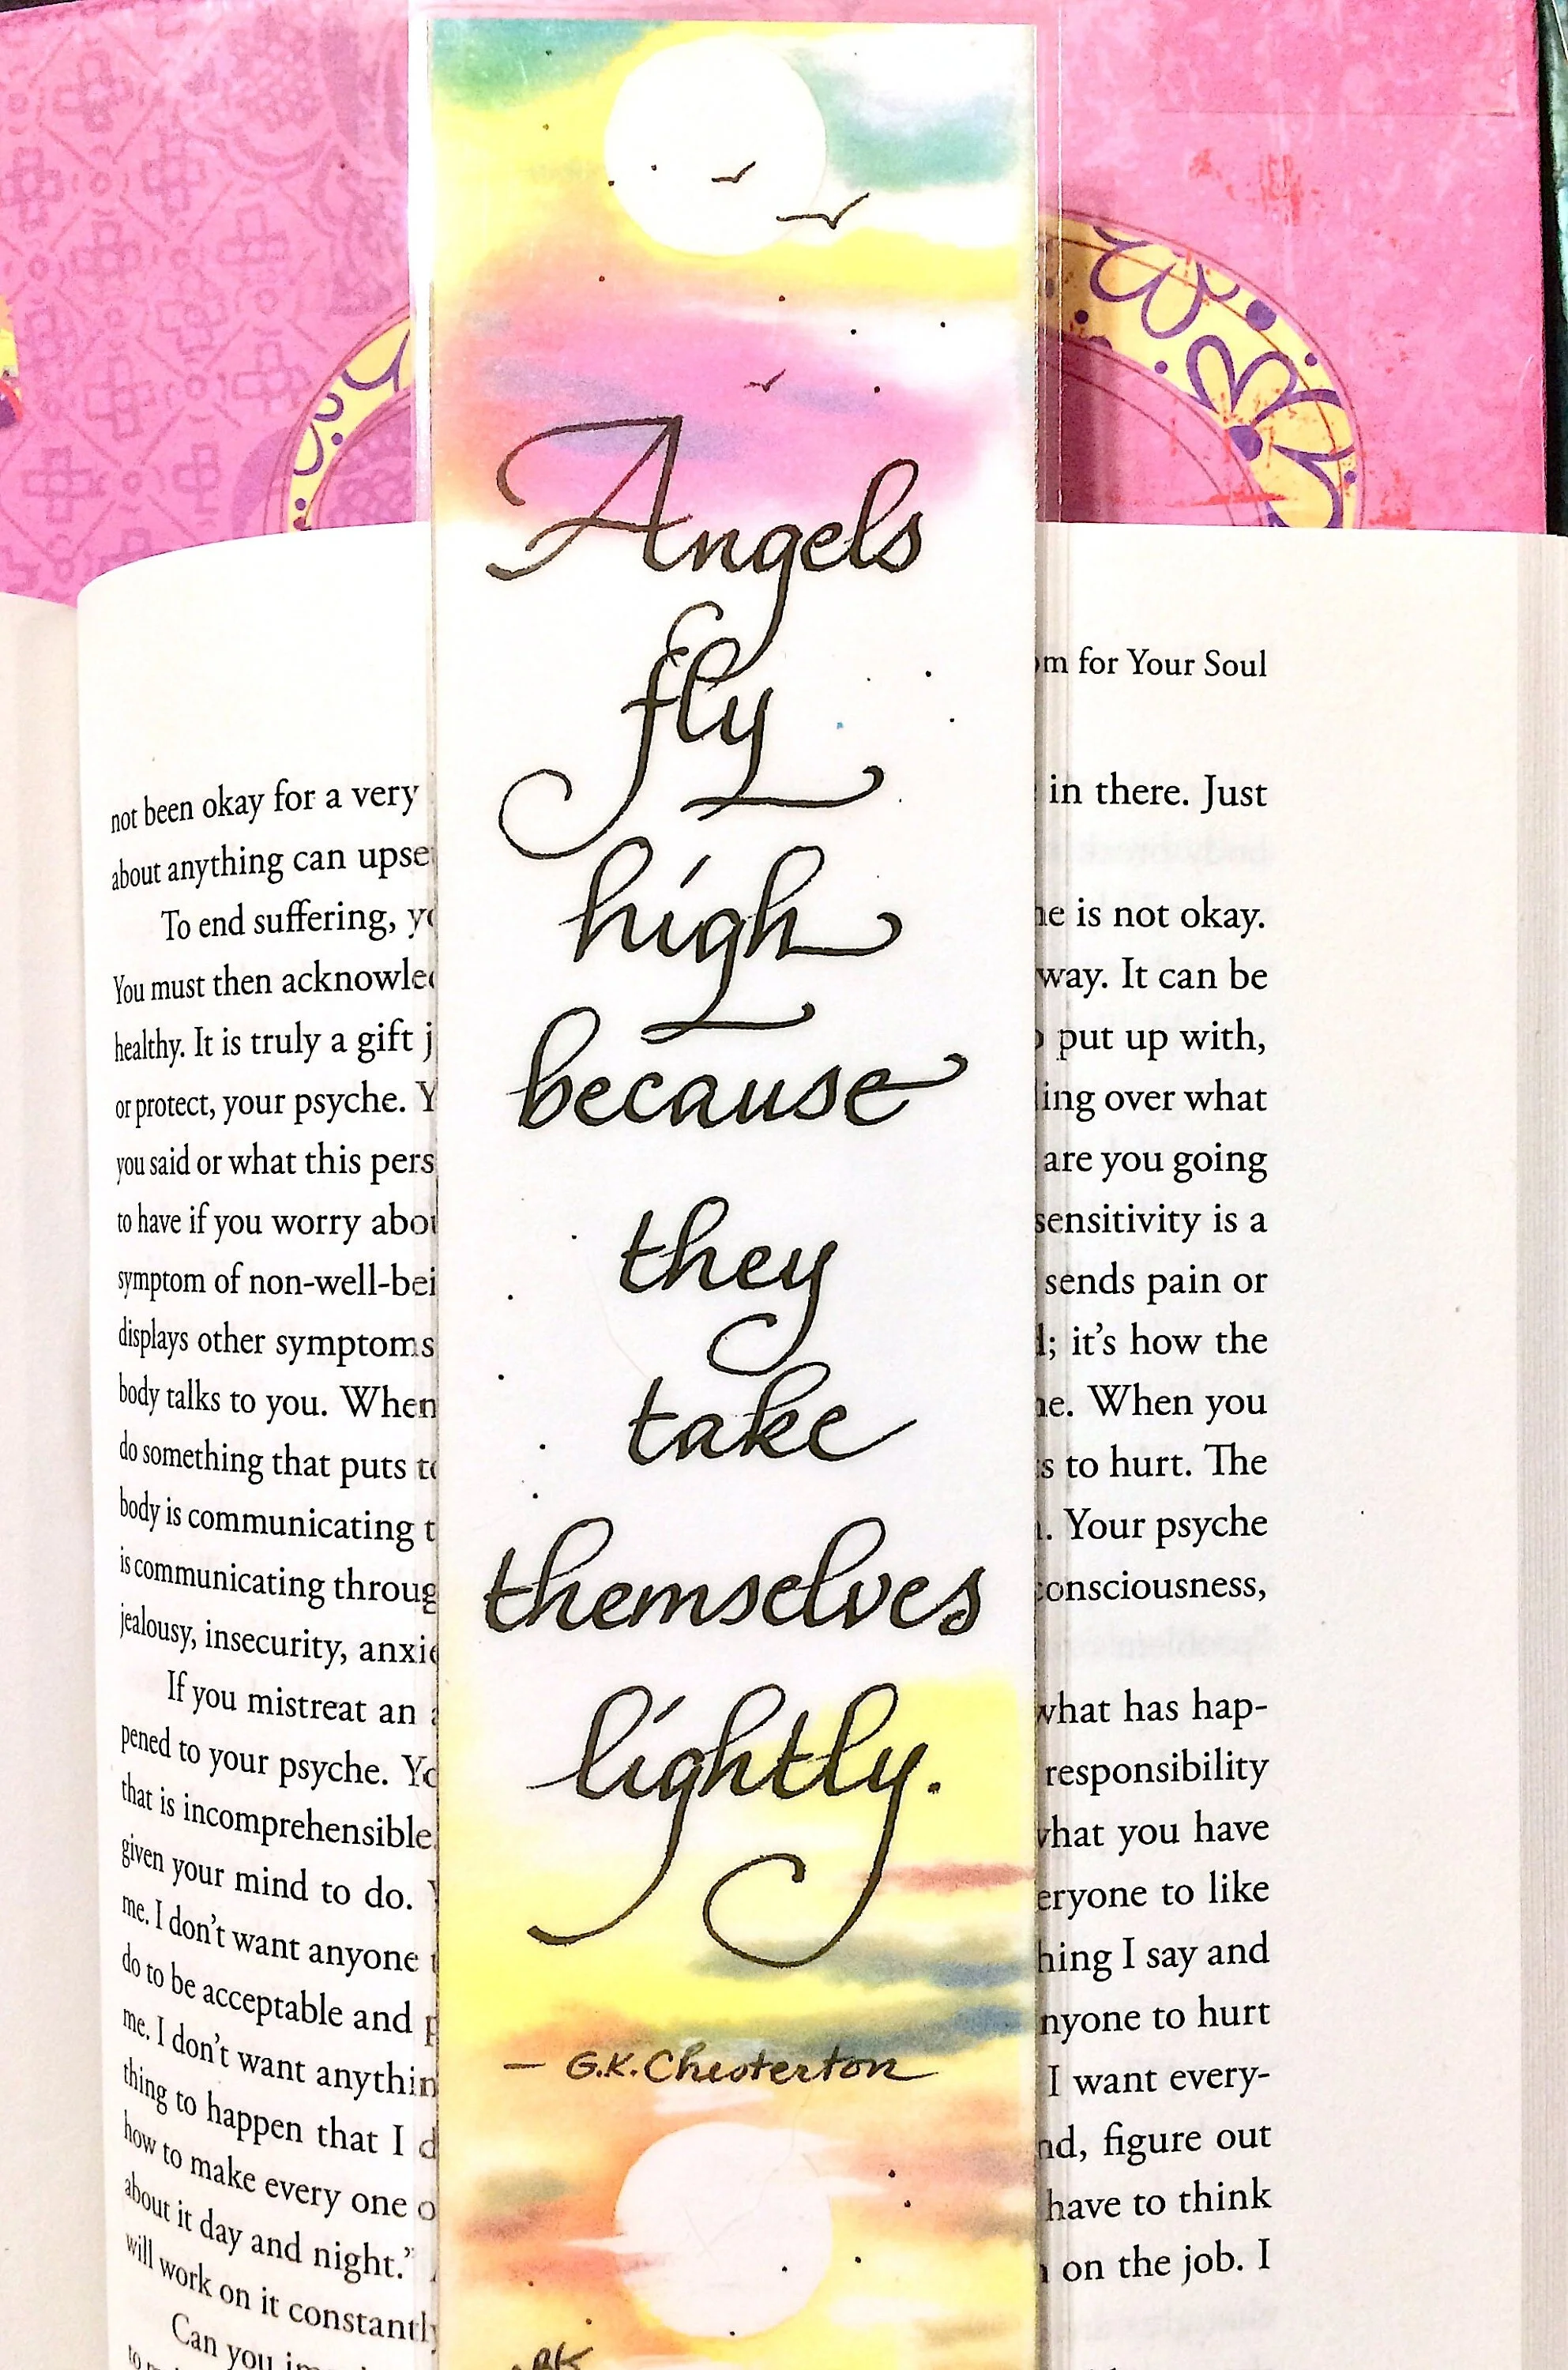 Angels
fly
high
because
they
take
themselves
lightly.
— G.K. Chesterton
BK
for Your Soul
not been okay for a very
about anything can
To end suffering,
You must then
healthy. It is truly a gift
or protect, your psyche.
you said or what this
to have if you worry
symptom of
displays other symptoms
body talks to you. When
do something that puts
body is communicating
is communicating
jealousy, insecurity,
If you mistreat an
pened to your psyche.
that is incomprehensible.
given your mind to do.
me. I don't want anyone
do to be acceptable and
me. I don't want
thing to happen that I
how to make every one
about it day and night.”
will work on it
Can you
in there. Just
is not okay.
way. It can be
put up with,
over what
are you going
sensitivity is a
sends pain or
it's how the
When you
to hurt. The
Your psyche
consciousness,
what has hap-
responsibility
what you have
to like
I say and
to hurt
I want every-
figure out
have to think
on the job. I